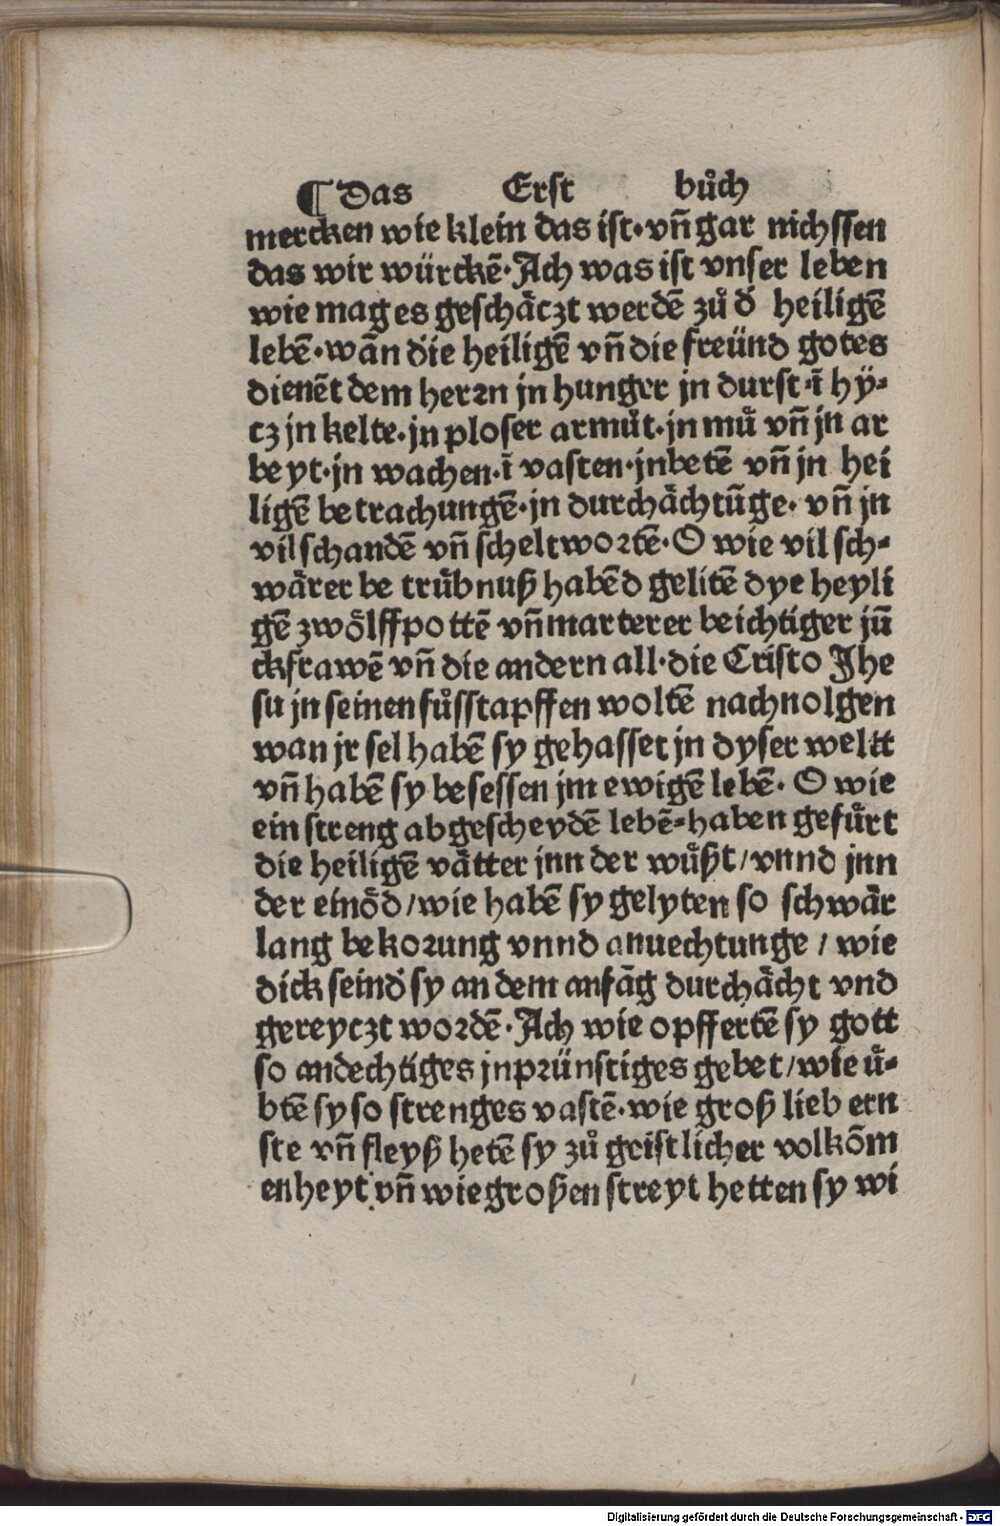 ¶ Das Erst bůch
mercken wie klein das ist·vn̄ gar nichssen
das wir würckē·Ach was ist vnser leben
wie mag es geschäczt werdē zů d̕ heiligē
lebē·wān die heiligē vn̄ die freünd gotes
dienēt dem herꝛn jn hunger jn durst·ī hÿ⸗
cz jn kelte·jn ploser armůt·jn mů vn̄ jn ar
beyt·jn wachen·ī vasten·jn betē vn̄ jn hei
ligē betrachungē·jn durchächtūge·vn̄ jn
vil schandē vn̄ scheltwoꝛtē·O wie vil sch⸗
wärer betrůbnuß habēd gelitē dye heyli
gē zwölffpottē vn̄ marterer beichtiger jū
ckfrawē vn̄ die andern all·die Cristo Jhe
su jn seinen fůsstapffen woltē nachnolgen
wan jr sel habē sy gehasset jn dyser weltt
vn̄ habē sy besessen jm ewigē lebē·O wie
ein streng abgescheydē lebē⸗haben gefůrt
die heiligē vätter jnn der wůßt/vnnd jnn
der einöd/wie habē sy gelyten so schwär
lang bekoꝛung vnnd anuechtunge/wie
dick seind sy an dem anfāg durchächt vnd
gereyczt woꝛdē·Ach wie opffertē sy gott
so andechtiges jnpꝛünstiges gebet/wie ů⸗
btē sy so strenges vastē·wie groß lieb ern
ste vn̄ fleyß hetē sy zů geistlicher volkōm
enheyt vn̄ wie großen streyt hetten sy wi
Digitalisierung gefördert durch die Deutsche Forschungsgemeinschaft - DFG